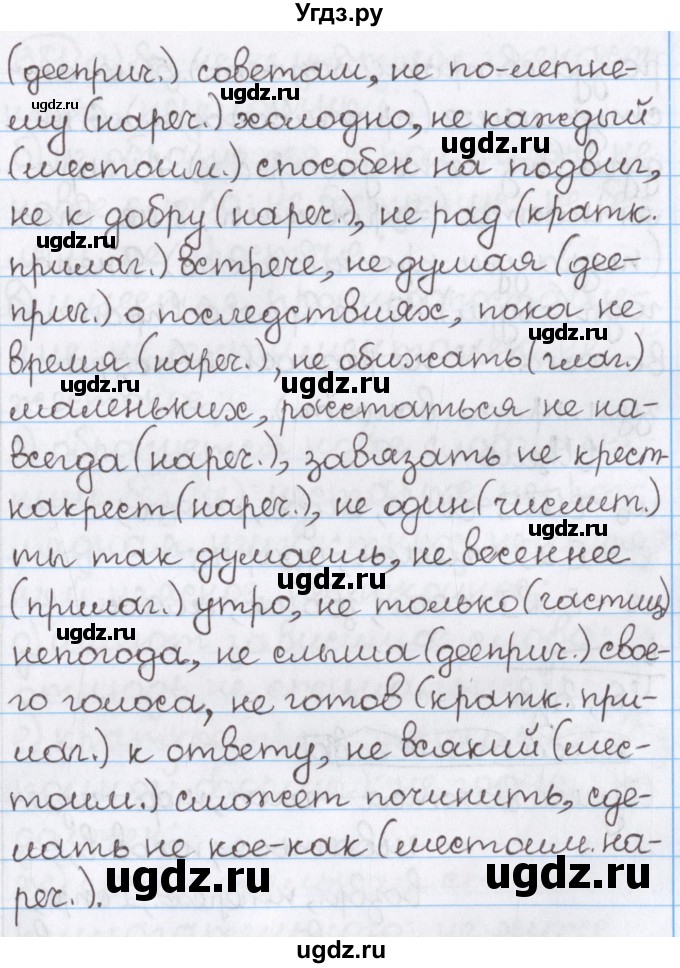 Угдз.ру
(дееприч.) советам, не по-летне-
му (нареч.) холодно, не каждый
(местоим.) способен на подвиг,
не к добру (нареч.), не рад (кратк.
прилаг.) встрече, не думая (дее-
прич.) о последствиях, пока не
время (нареч.), не обижать (глаг.)
маленьких, расстаться не на-
всегда (нареч.), завязать не крест-
накрест (нареч.), не один (числит.)
ты так думаешь, не весеннее
(прилаг.) утро, не только (частиц)
непогода, не слыша (дееприч.) свое-
го голоса, не готов (кратк. при-
лаг.) к ответу, не всякий (мес-
тоим.) сможет починить, сде-
лать не кое-как (местоим. на-
реч.).
ugdz.ru
ugdz.ru
ugdz.ru
ugdz.ru
ugdz.ru
ugdz.ru
ugdz.ru
ugdz.ru
ugdz.ru
ugdz.ru
ugdz.ru
ugdz.ru
ugdz.ru
ugdz.ru